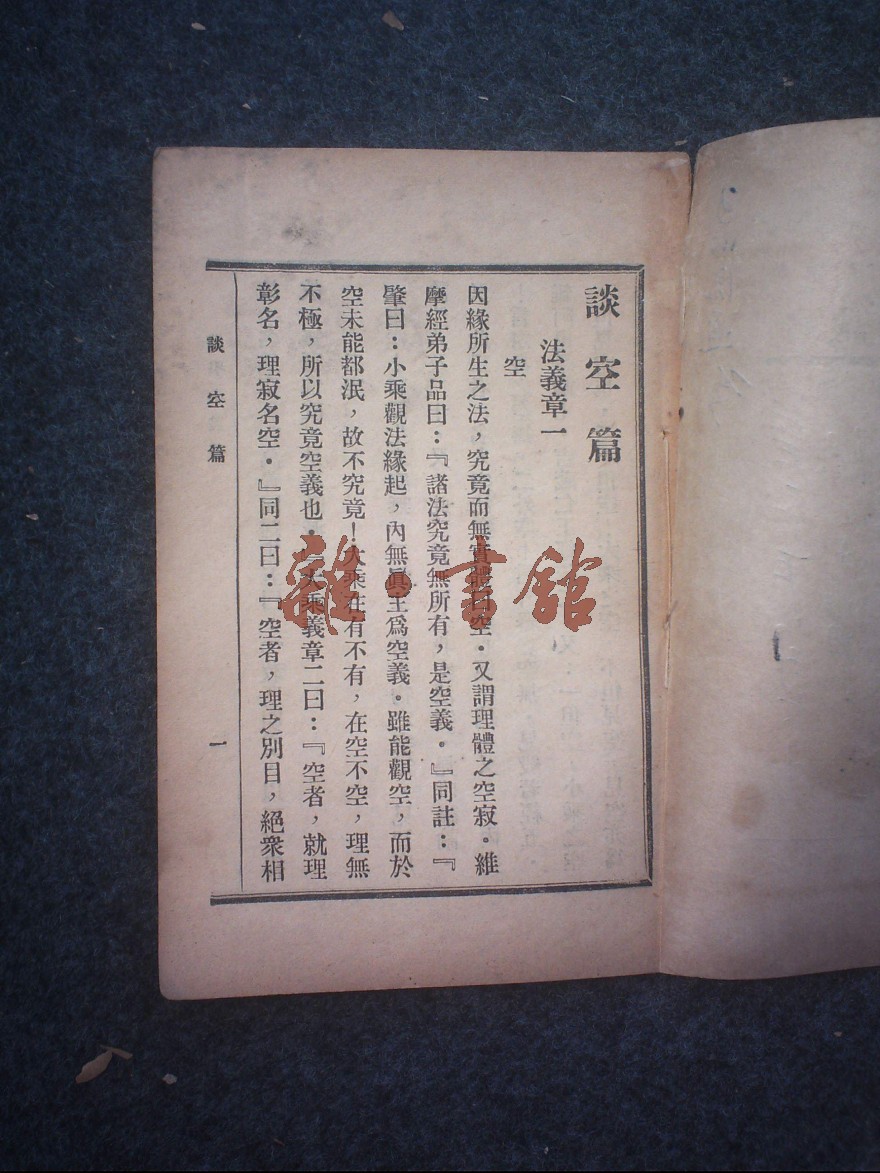 談空篇
法義章一
空
因緣所生之法，究竟而無實體曰空．又謂理體之空寂．維
摩經弟子品曰：『諸法究竟無所有，是空義．』同註：『
肇曰：小乘觀法緣起，內無眞主爲空義。雖能觀空，而於
空未能都泯，故不究竟！大乘在有不有，在空不空，理無
不極，所以究竟空義也．』大乘義章二曰：『空者，就理
彰名，理寂名空．』同二曰：『空者，理之別目，絕衆相
談空篇
一
雜·書舘